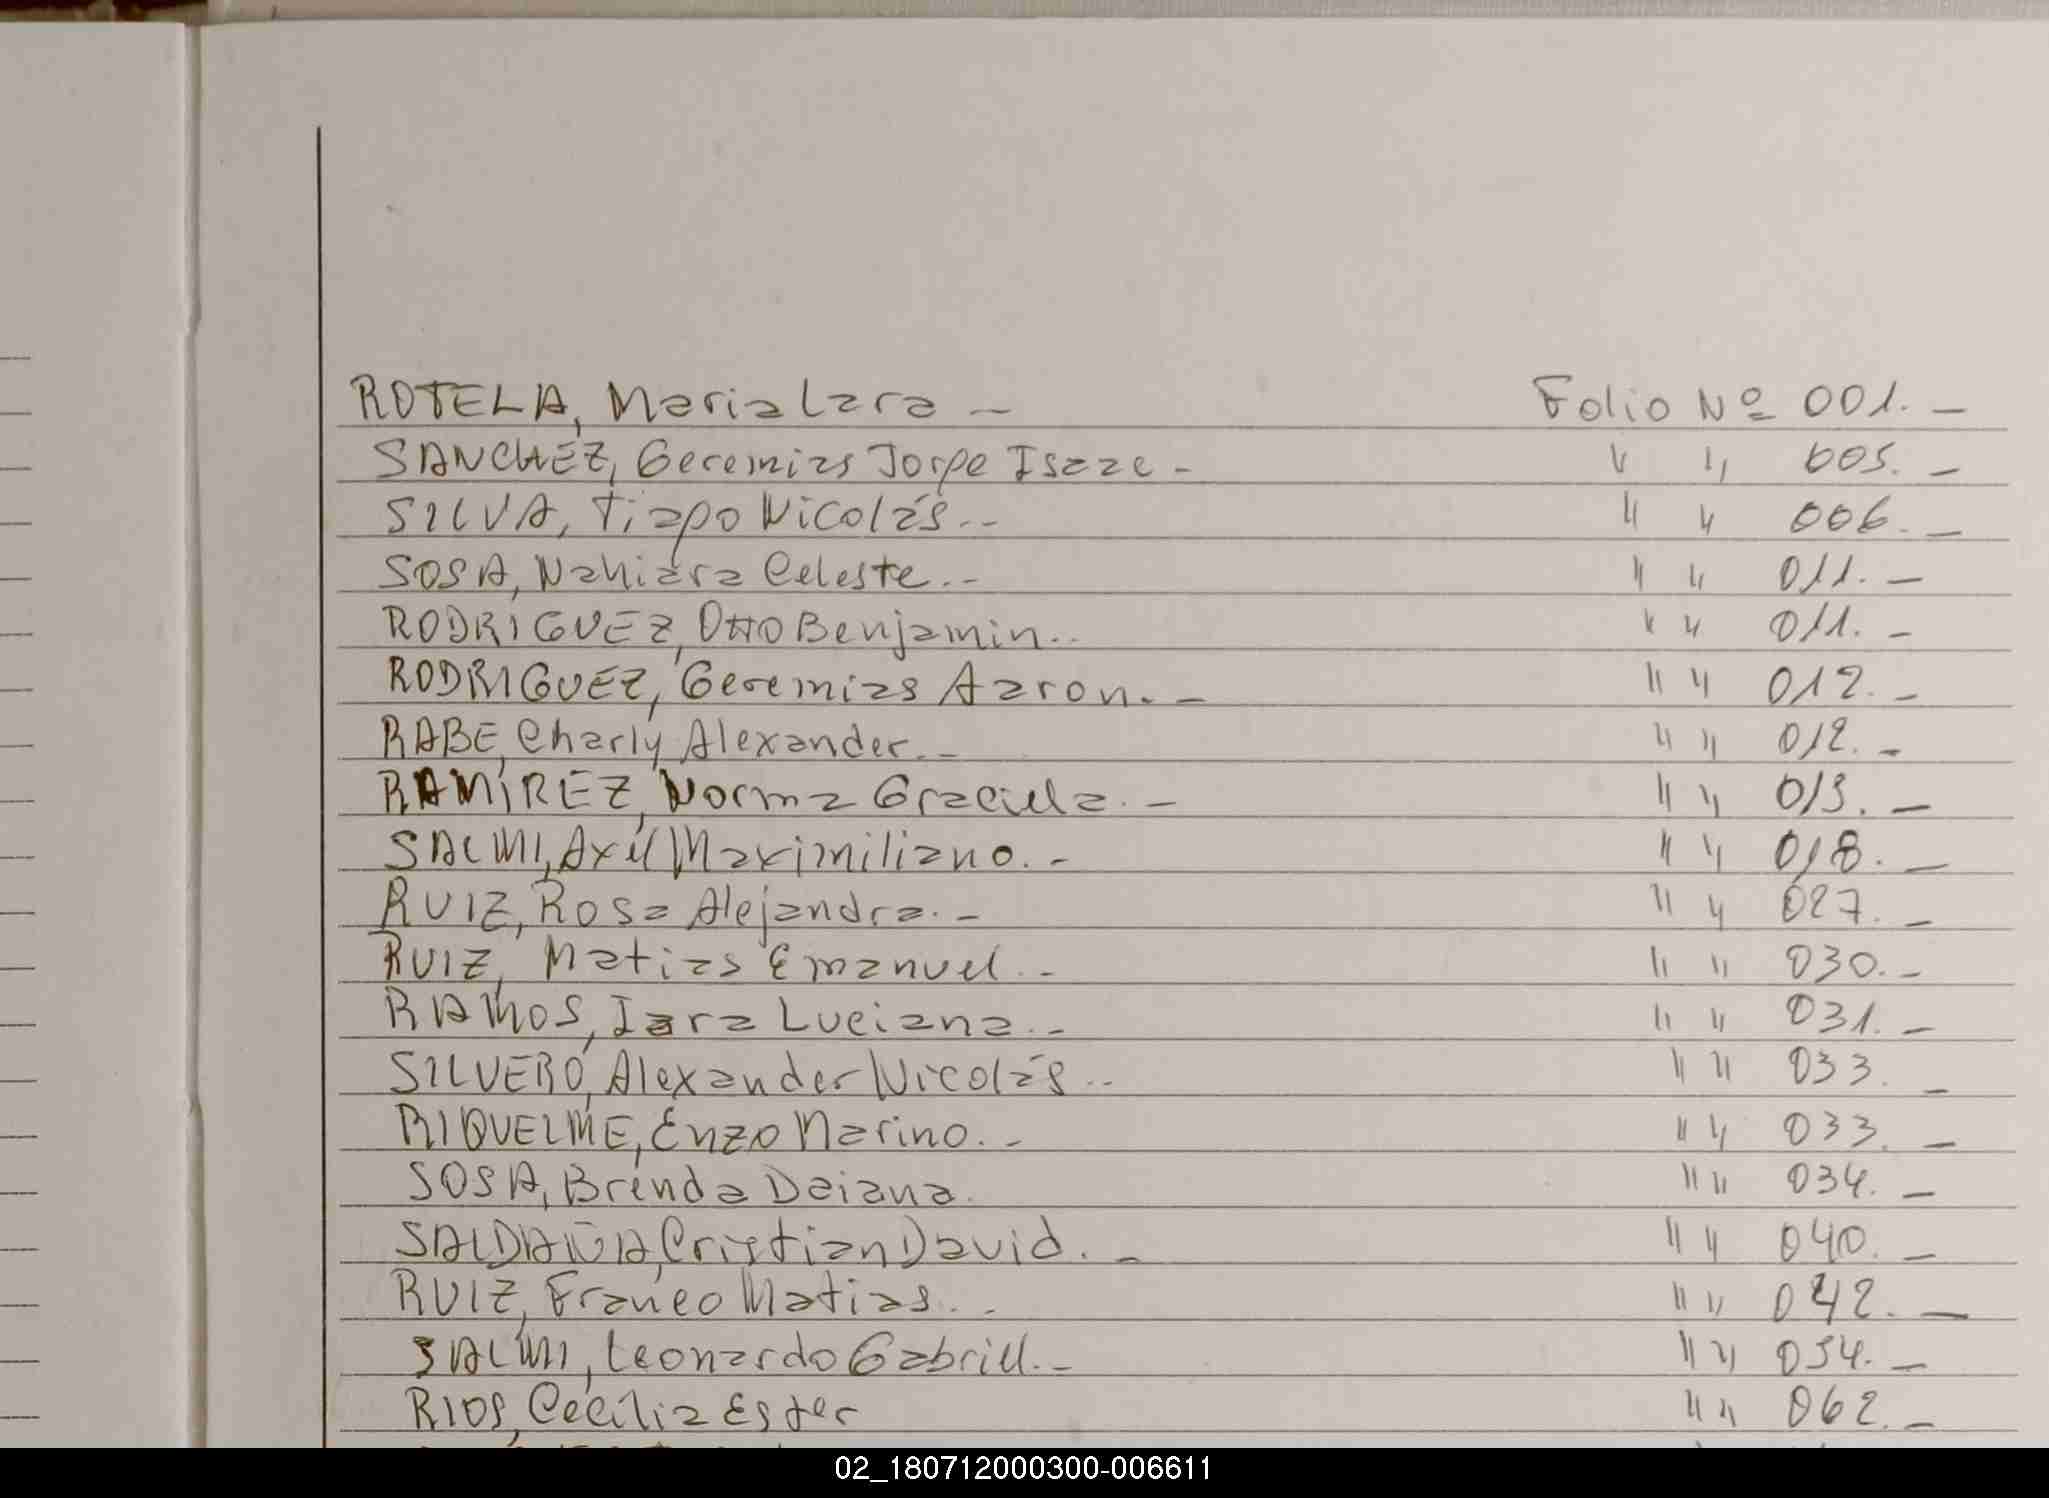 ROTELA, Maria Lara - Folio Nº 001. -
SANCHEZ, Geremias Jorge Isaac - " " 005. -
SILVA, Tiago Nicolás. - " " 006. -
SOSA, Nahiara Celeste. - " " 011. -
RODRIGUEZ, Otto Benjamin. - " " 011. -
RODRIGUEZ, Geremias Aaron. - " " 012. -
RABE, Charly Alexander. - " " 012. -
RAMÍREZ, Norma Graciela. - " " 013. -
SALMI, Axel Maximiliano. - " " 018. -
RUIZ, Rosa Alejandra. - " " 027. -
RUIZ, Matias Emanuel. - " " 030. -
RAMOS, Iara Luciana. - " " 031. -
SILVERO, Alexander Nicolás. - " " 033. -
RIQUELME, Enzo Marino. - " " 033. -
SOSA, Brenda Daiana. " " 034. -
SALDAÑA, Cristian David. - " " 040. -
RUIZ, Franco Matias. - " " 042. -
SALMI, Leonardo Gabriel. - " " 054. -
RIOS, Cecilia Ester " " 062. -
02_180712000300-006611